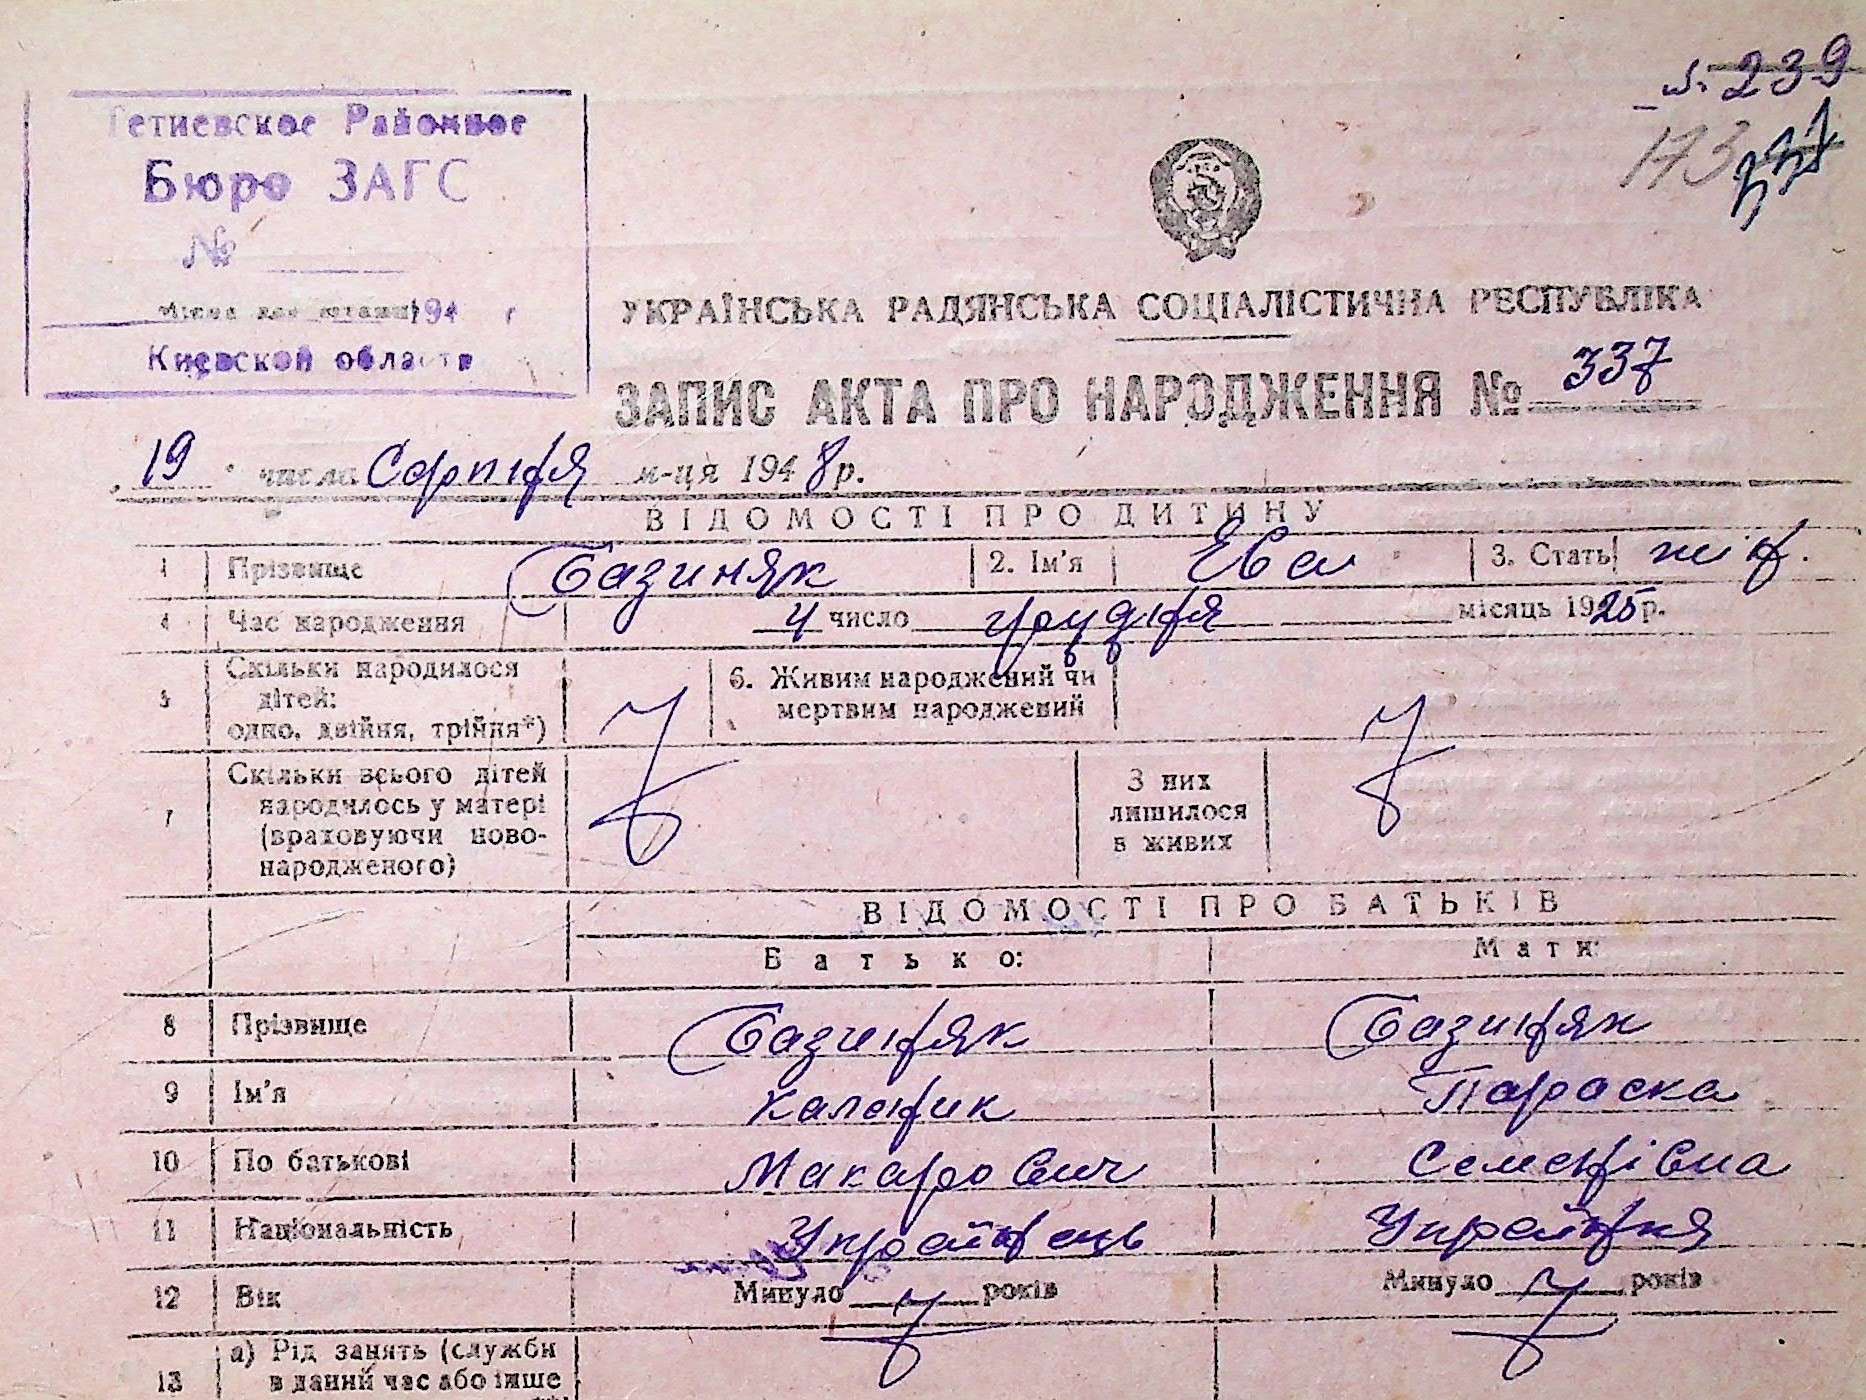 Тетиевское Районное
Бюро ЗАГС
№
194 г
Киевской области
239
173 337
УКРАЇНСЬКА РАДЯНСЬКА СОЦІАЛІСТИЧНА РЕСПУБЛІКА
ЗАПИС АКТА ПРО НАРОДЖЕННЯ № 337
19 числа Серпня м-ця 1948 р.
ВІДОМОСТІ ПРО ДИТИНУ
1 Прізвище Базиняк 2. Ім'я Ева 3. Стать жін.
4 Час народження 4 число грудня місяць 1925 р.
5 Скільки народилося дітей: одно, двійня, трійня*) 6. Живим народжений чи мертвим народжений
7 Скільки всього дітей народилось у матері (враховуючи ново-народженого) З них лишилося в живих
ВІДОМОСТІ ПРО БАТЬКІВ
Батько: Мати:
8 Прізвище Базиняк Базиняк
9 Ім'я Каленик Параска
10 По батькові Макарович Семенівна
11 Національність Українець Україн­ка
12 Вік Минуло років Минуло років
13 а) Рід занять (служби в даний час або інше